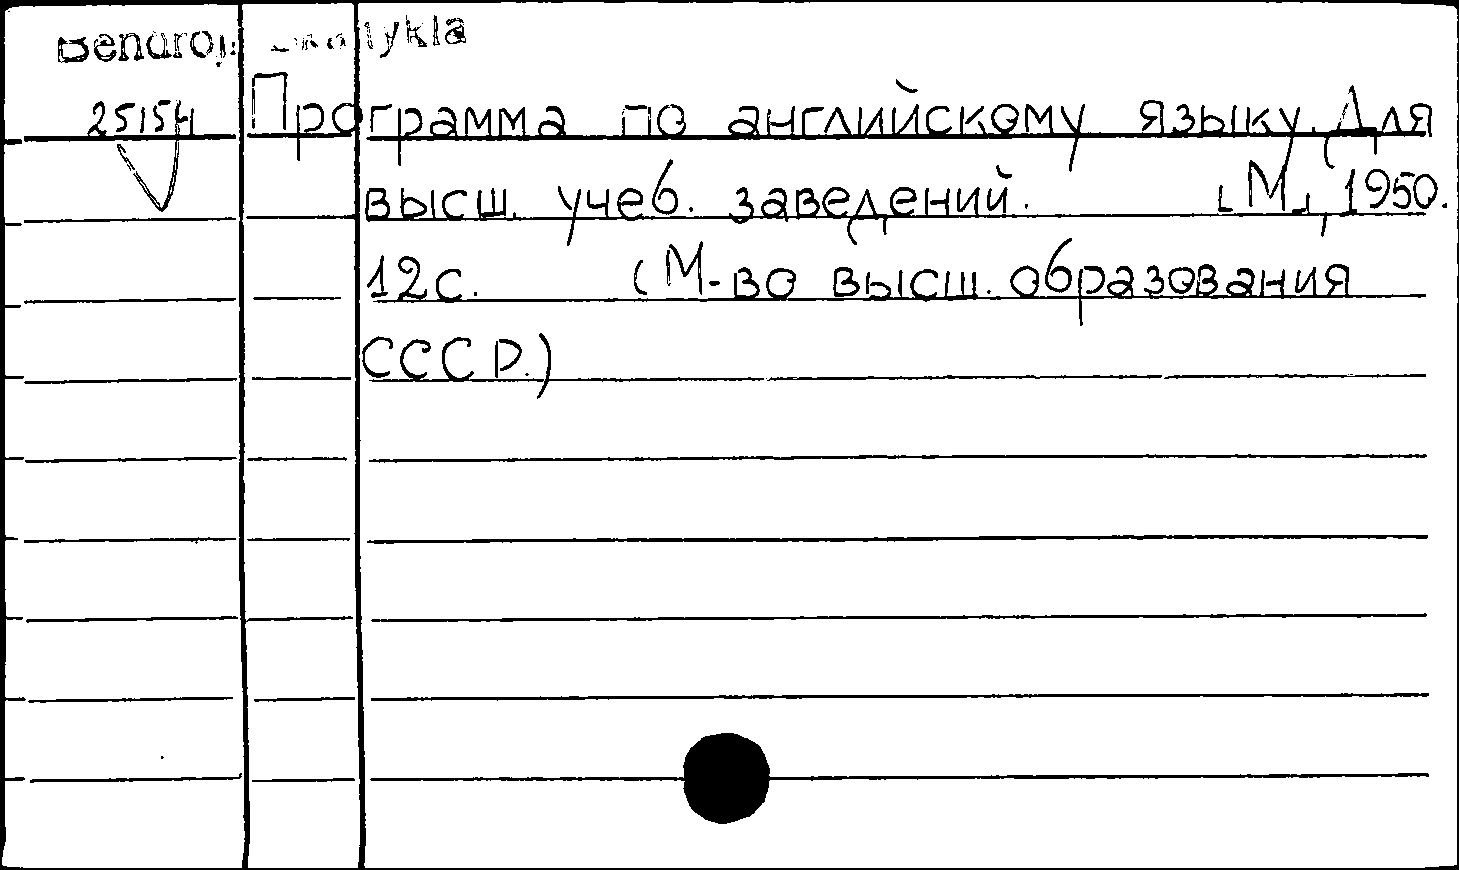 Bendroji skaitykla
25154 Программа по английскому языку. Для
высш. учеб. заведений. [М.], 1950.
12 с. (М-во высш. образования
СССР.)